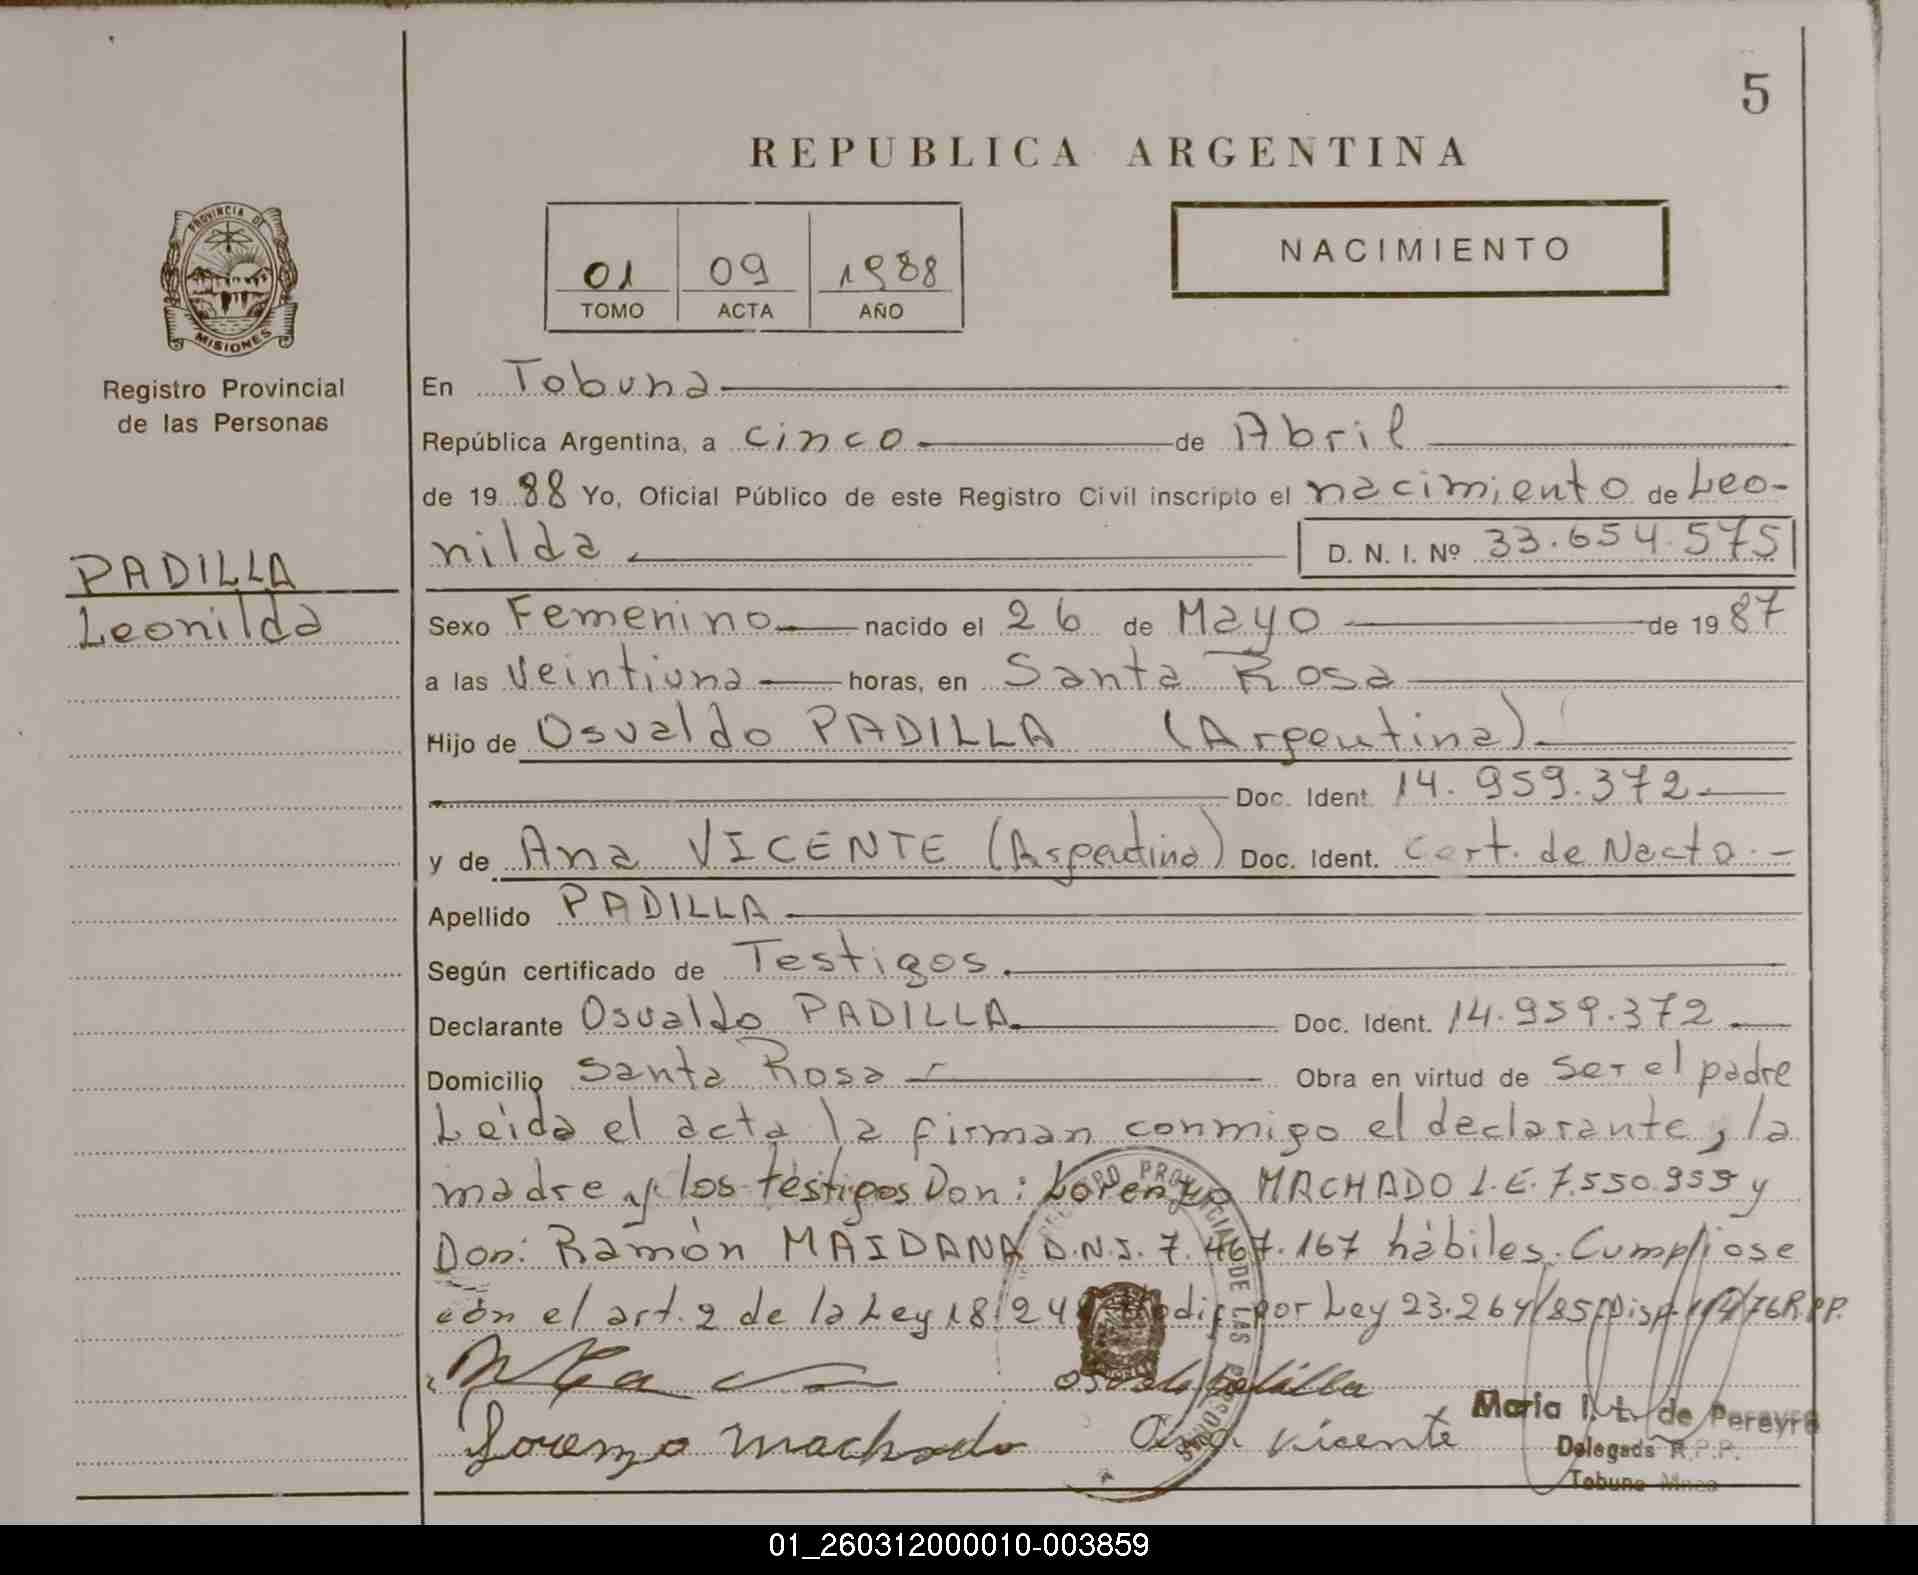 5
REPUBLICA ARGENTINA
PROVINCIA DE
MISIONES
Registro Provincial
de las Personas
01 09 1988
TOMO ACTA AÑO
NACIMIENTO
En Tobuna
República Argentina, a cinco de Abril
de 1988 Yo, Oficial Público de este Registro Civil inscripto el nacimiento de Leo-
nilda D. N. I. Nº 33.654.575
PADILLA
Leonilda
Sexo Femenino nacido el 26 de Mayo de 1987
a las Veintiuna horas, en Santa Rosa
Hijo de Osvaldo PADILLA (Argentina)
Doc. Ident. 14.959.372
y de Ana VICENTE (Argentina) Doc. Ident. Cert. de Nacto.-
Apellido PADILLA
Según certificado de Testigos.
Declarante Osvaldo PADILLA Doc. Ident. 14.959.372
Domicilio Santa Rosa Obra en virtud de ser el padre
Leída el acta la firman conmigo el declarante, la
madre y los testigos Don: Lorenzo MACHADO L.E. 7.550.959 y
Don: Ramón MAIDANA D.N.I. 7.467.167 hábiles. Cumpliose
con el art. 2 de la Ley 18.248 Modif. por Ley 23.264/85 Disp. /76 R.P.P.
REGISTRO PROVINCIAL DE LAS PERSONAS
Osvaldo Padilla
Lorenzo Machado Ana Vicente
Maria I. L. de Pereyra
Delegada R.P.P.
Tobuna Mnes
01_260312000010-003859